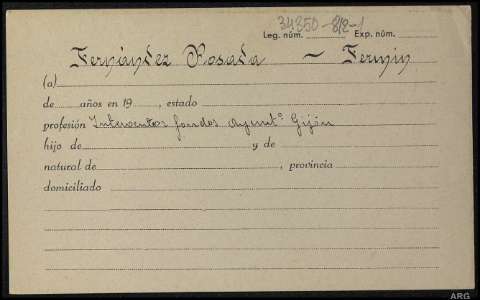 34350-812-1
Leg. núm. Exp. núm.
Fernández Posada — Fermin
(a)
de años en 19 , estado
profesión Interventor fondos Ayuntº Gijón
hijo de y de
natural de , provincia
domiciliado
ARG